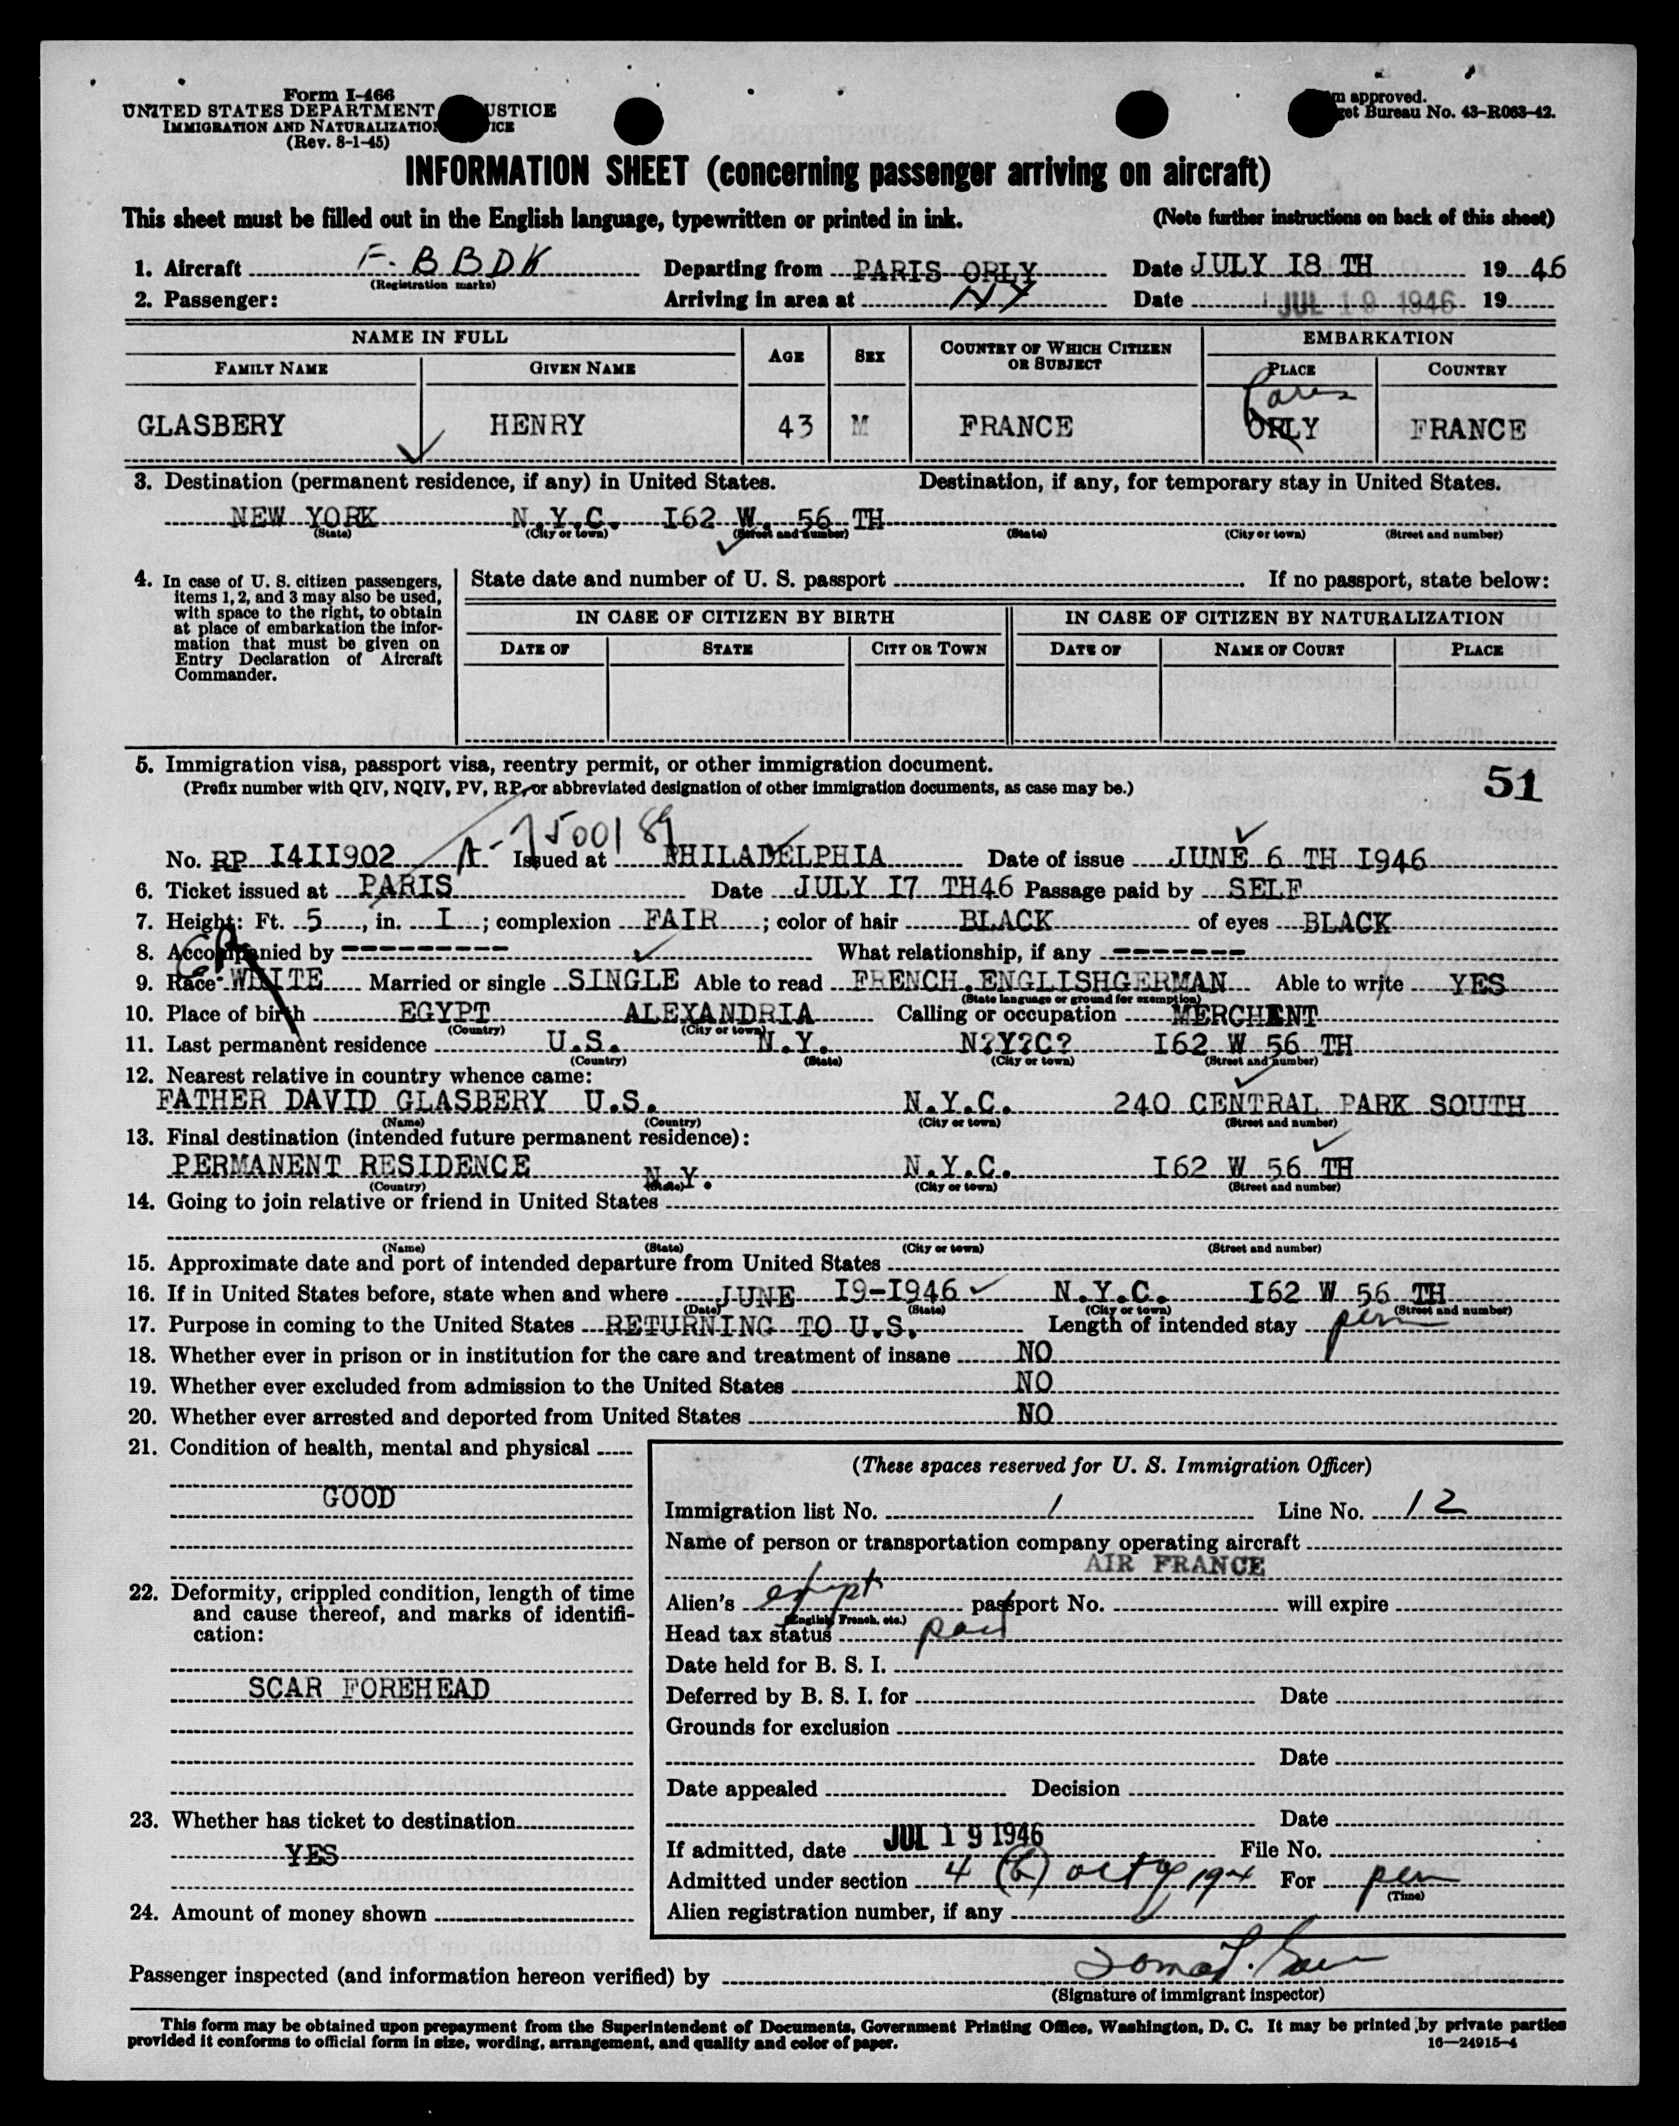 Form I-466
UNITED STATES DEPARTMENT USTICE
IMMIGRATION AND NATURALIZATION ICE
(Rev. 8-1-45)
m approved.
get Bureau No. 43-R063-42.
INFORMATION SHEET (concerning passenger arriving on aircraft)
This sheet must be filled out in the English language, typewritten or printed in ink. (Note further instructions on back of this sheet)
1. Aircraft F. B B D K Departing from PARIS ORLY Date JULY I8 TH 19 46
(Registration marks)
2. Passenger: Arriving in area at NY Date JUL 19 1946 19
NAME IN FULL AGE SEX COUNTRY OF WHICH CITIZEN OR SUBJECT EMBARKATION
FAMILY NAME GIVEN NAME PLACE COUNTRY
Paris
GLASBERY HENRY 43 M FRANCE ORLY FRANCE
3. Destination (permanent residence, if any) in United States. Destination, if any, for temporary stay in United States.
NEW YORK N.Y.C. I62 W. 56 TH
(State) (City or town) (Street and number) (State) (City or town) (Street and number)
4. In case of U. S. citizen passengers, items 1, 2, and 3 may also be used, with space to the right, to obtain at place of embarkation the information that must be given on Entry Declaration of Aircraft Commander.
State date and number of U. S. passport . If no passport, state below:
IN CASE OF CITIZEN BY BIRTH IN CASE OF CITIZEN BY NATURALIZATION
DATE OF STATE CITY OR TOWN DATE OF NAME OF COURT PLACE
5. Immigration visa, passport visa, reentry permit, or other immigration document.
(Prefix number with QIV, NQIV, PV, RP, or abbreviated designation of other immigration documents, as case may be.)
51
A-7500189
No. RP I4II902 Issued at PHILADELPHIA Date of issue JUNE 6 TH I946
6. Ticket issued at PARIS Date JULY I7 TH46 Passage paid by SELF
7. Height: Ft. 5, in. I; complexion FAIR; color of hair BLACK of eyes BLACK
8. Accompanied by ---------- What relationship, if any --------
9. Race WHITE Married or single SINGLE Able to read FRENCH.ENGLISHGERMAN Able to write YES
(State language or ground for exemption)
10. Place of birth EGYPT ALEXANDRIA Calling or occupation MERCHENT
(Country) (City or town)
11. Last permanent residence U.S. N.Y. N?Y?C? I62 W 56 TH
(Country) (State) (City or town) (Street and number)
12. Nearest relative in country whence came:
FATHER DAVID GLASBERY U.S. N.Y.C. 240 CENTRAL PARK SOUTH
(Name) (Country) (City or town) (Street and number)
13. Final destination (intended future permanent residence):
PERMANENT RESIDENCE N.Y. N.Y.C. I62 W 56 TH
(Country) (State) (City or town) (Street and number)
14. Going to join relative or friend in United States
(Name) (State) (City or town) (Street and number)
15. Approximate date and port of intended departure from United States
16. If in United States before, state when and where JUNE I9-I946 N.Y.C. I62 W 56 TH
(Date) (State) (City or town) (Street and number)
17. Purpose in coming to the United States RETURNING TO U.S. Length of intended stay perm
18. Whether ever in prison or in institution for the care and treatment of insane NO
19. Whether ever excluded from admission to the United States NO
20. Whether ever arrested and deported from United States NO
21. Condition of health, mental and physical
GOOD
22. Deformity, crippled condition, length of time and cause thereof, and marks of identification:
SCAR FOREHEAD
23. Whether has ticket to destination
YES
24. Amount of money shown
(These spaces reserved for U. S. Immigration Officer)
Immigration list No. 1 Line No. 12
Name of person or transportation company operating aircraft
AIR FRANCE
Alien's egypt passport No. will expire
(English, French, etc.)
Head tax status paid
Date held for B. S. I.
Deferred by B. S. I. for Date
Grounds for exclusion
Date
Date appealed Decision
Date
If admitted, date JUL 19 1946 File No.
Admitted under section 4 (b) act of 1924 For perm
(Time)
Alien registration number, if any
Passenger inspected (and information hereon verified) by
(Signature of immigrant inspector)
This form may be obtained upon prepayment from the Superintendent of Documents, Government Printing Office, Washington, D. C. It may be printed by private parties
provided it conforms to official form in size, wording, arrangement, and quality and color of paper. 16—24915-4